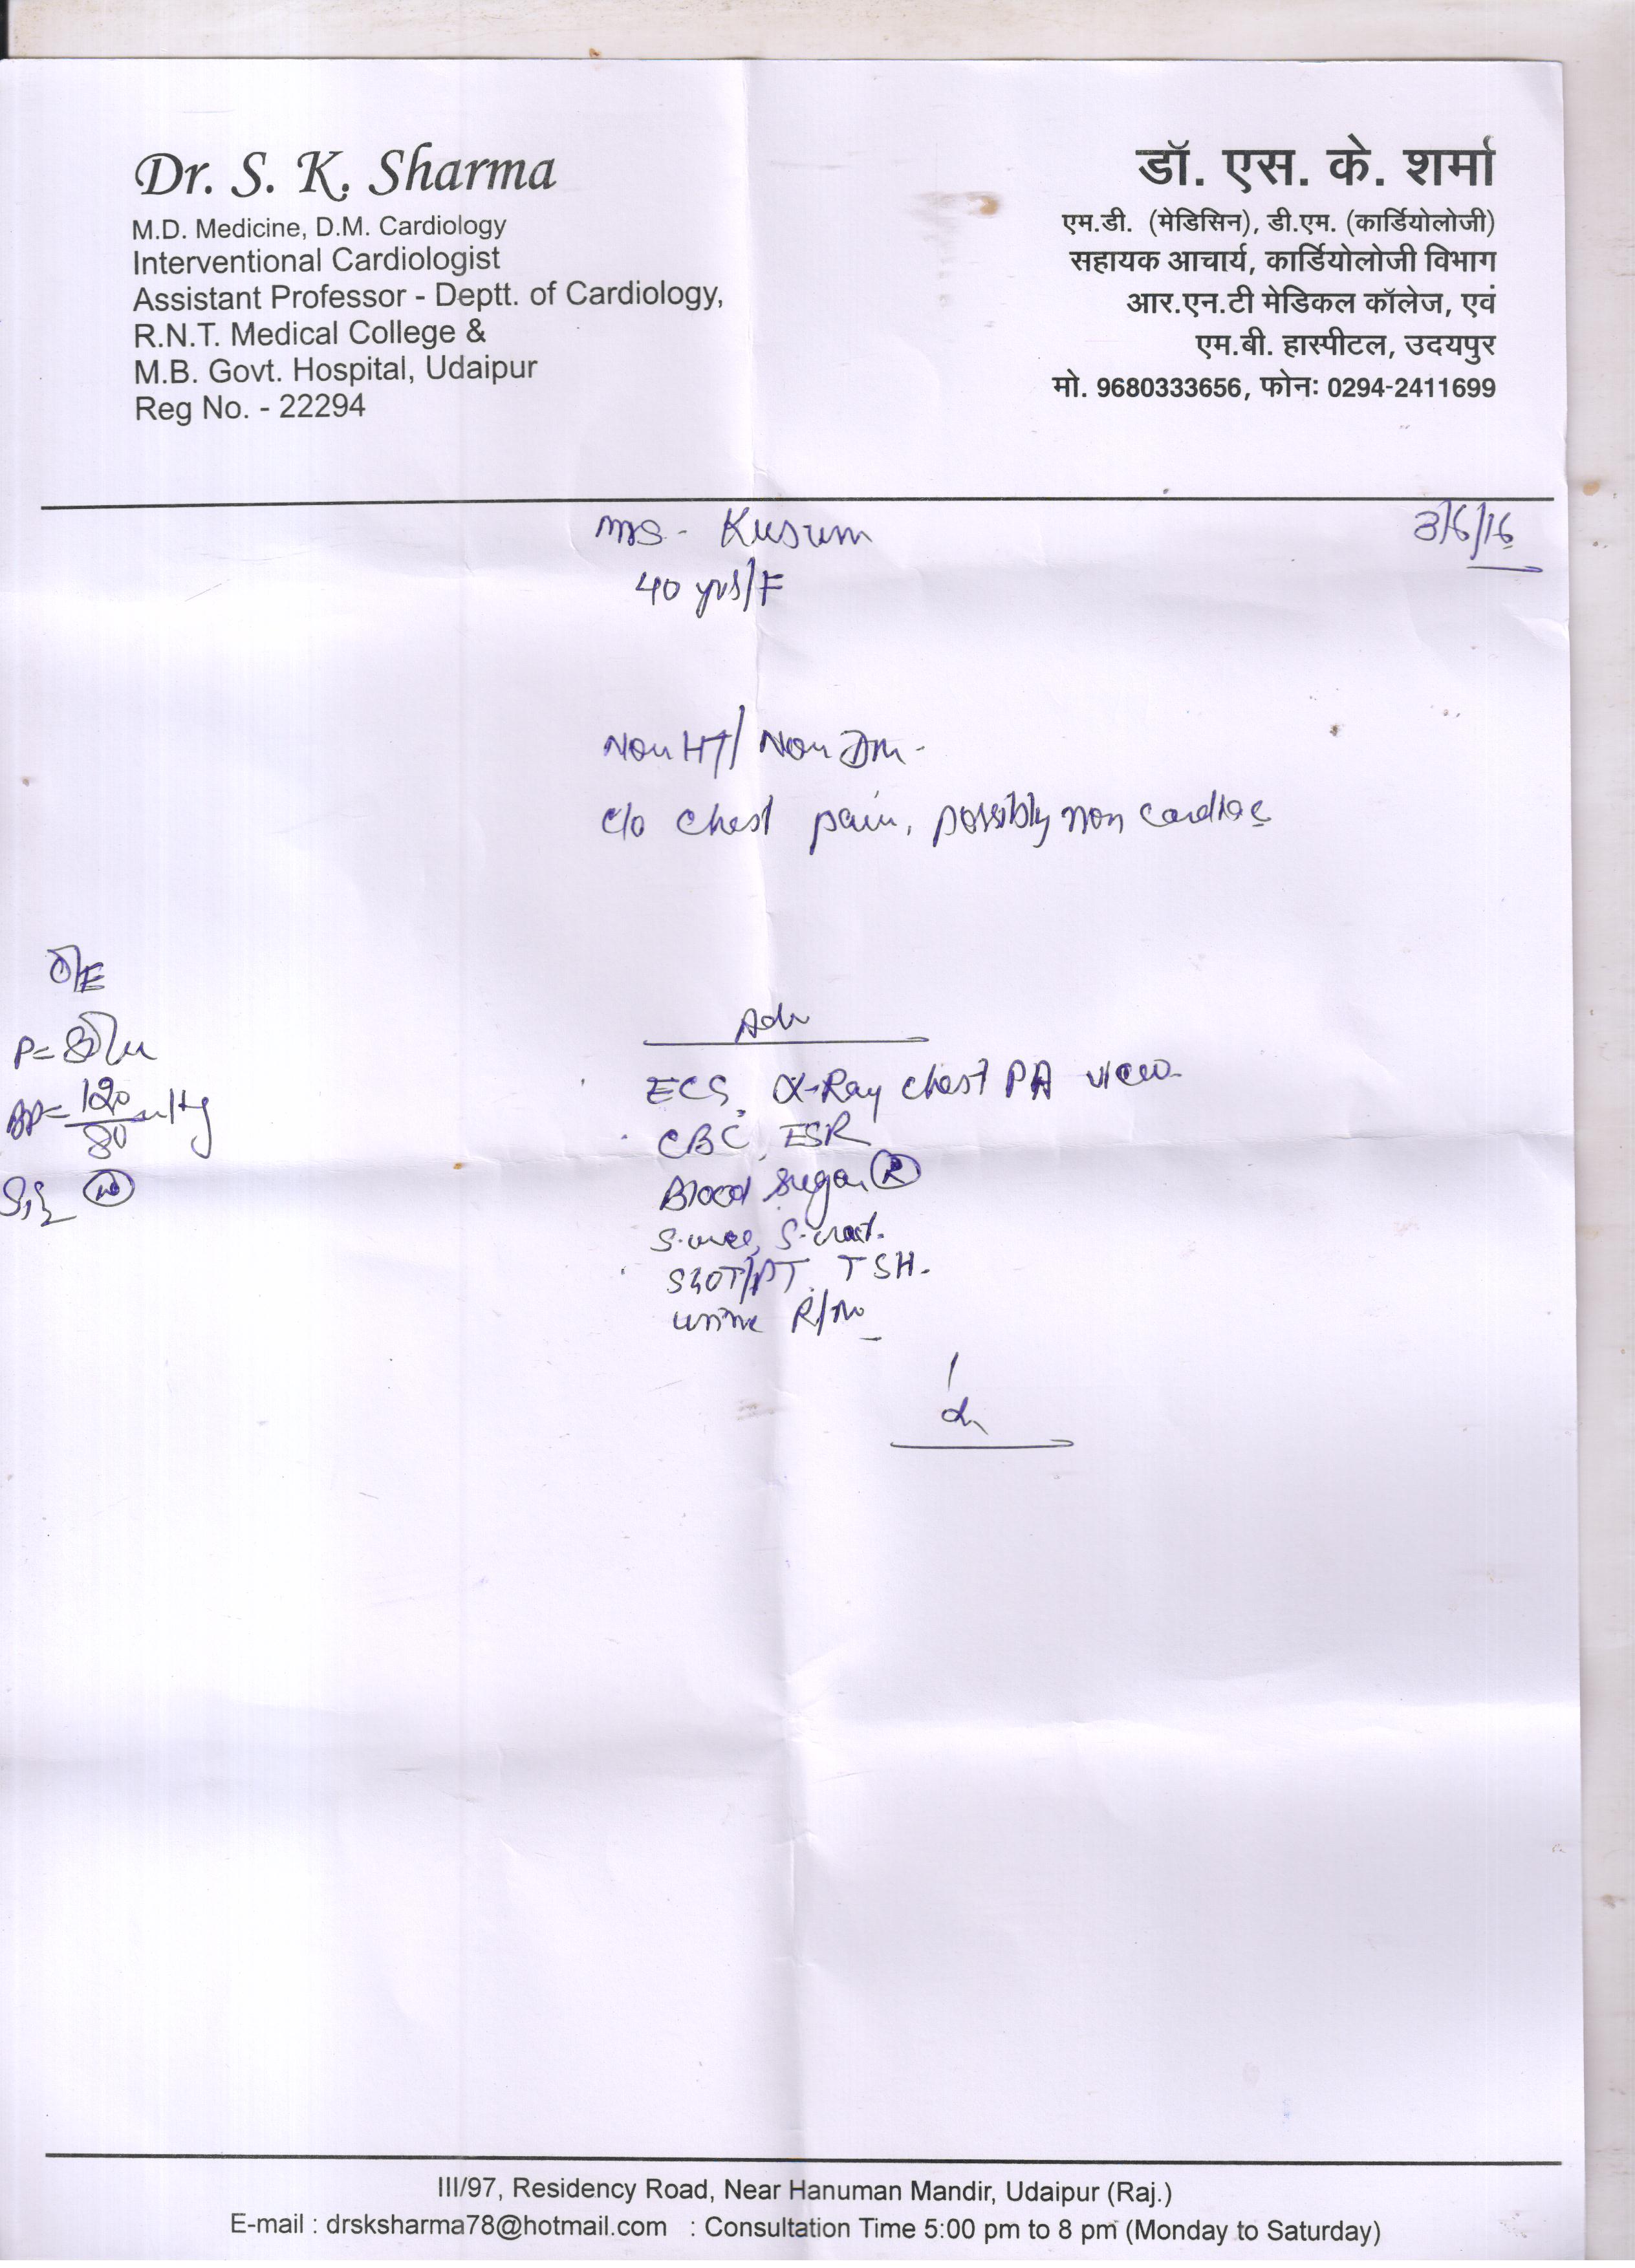 Dr. S. K. Sharma
M.D. Medicine, D.M. Cardiology
Interventional Cardiologist
Assistant Professor - Deptt. of Cardiology,
R.N.T. Medical College &
M.B. Govt. Hospital, Udaipur
Reg No. - 22294
डॉ. एस. के. शर्मा
एम.डी. (मेडिसिन), डी.एम. (कार्डियोलोजी)
सहायक आचार्य, कार्डियोलोजी विभाग
आर.एन.टी मेडिकल कॉलेज, एवं
एम.बी. हास्पीटल, उदयपुर
मो. 9680333656, फोन: 0294-2411699
3/6/16
Mrs - Kusum
40 yrs/F
Non HT/ Non DM -
c/o chest pain, possibly non cardiac
O/E
P= 80/m
BP= 120/80 mmHg
S1S2
Adv
ECG, X-Ray chest PA view
CBC, ESR
Blood Sugar (R)
S. urea, S. creat.
SGOT/PT, TSH.
Urine R/M
III/97, Residency Road, Near Hanuman Mandir, Udaipur (Raj.)
E-mail : drsksharma78@hotmail.com : Consultation Time 5:00 pm to 8 pm (Monday to Saturday)